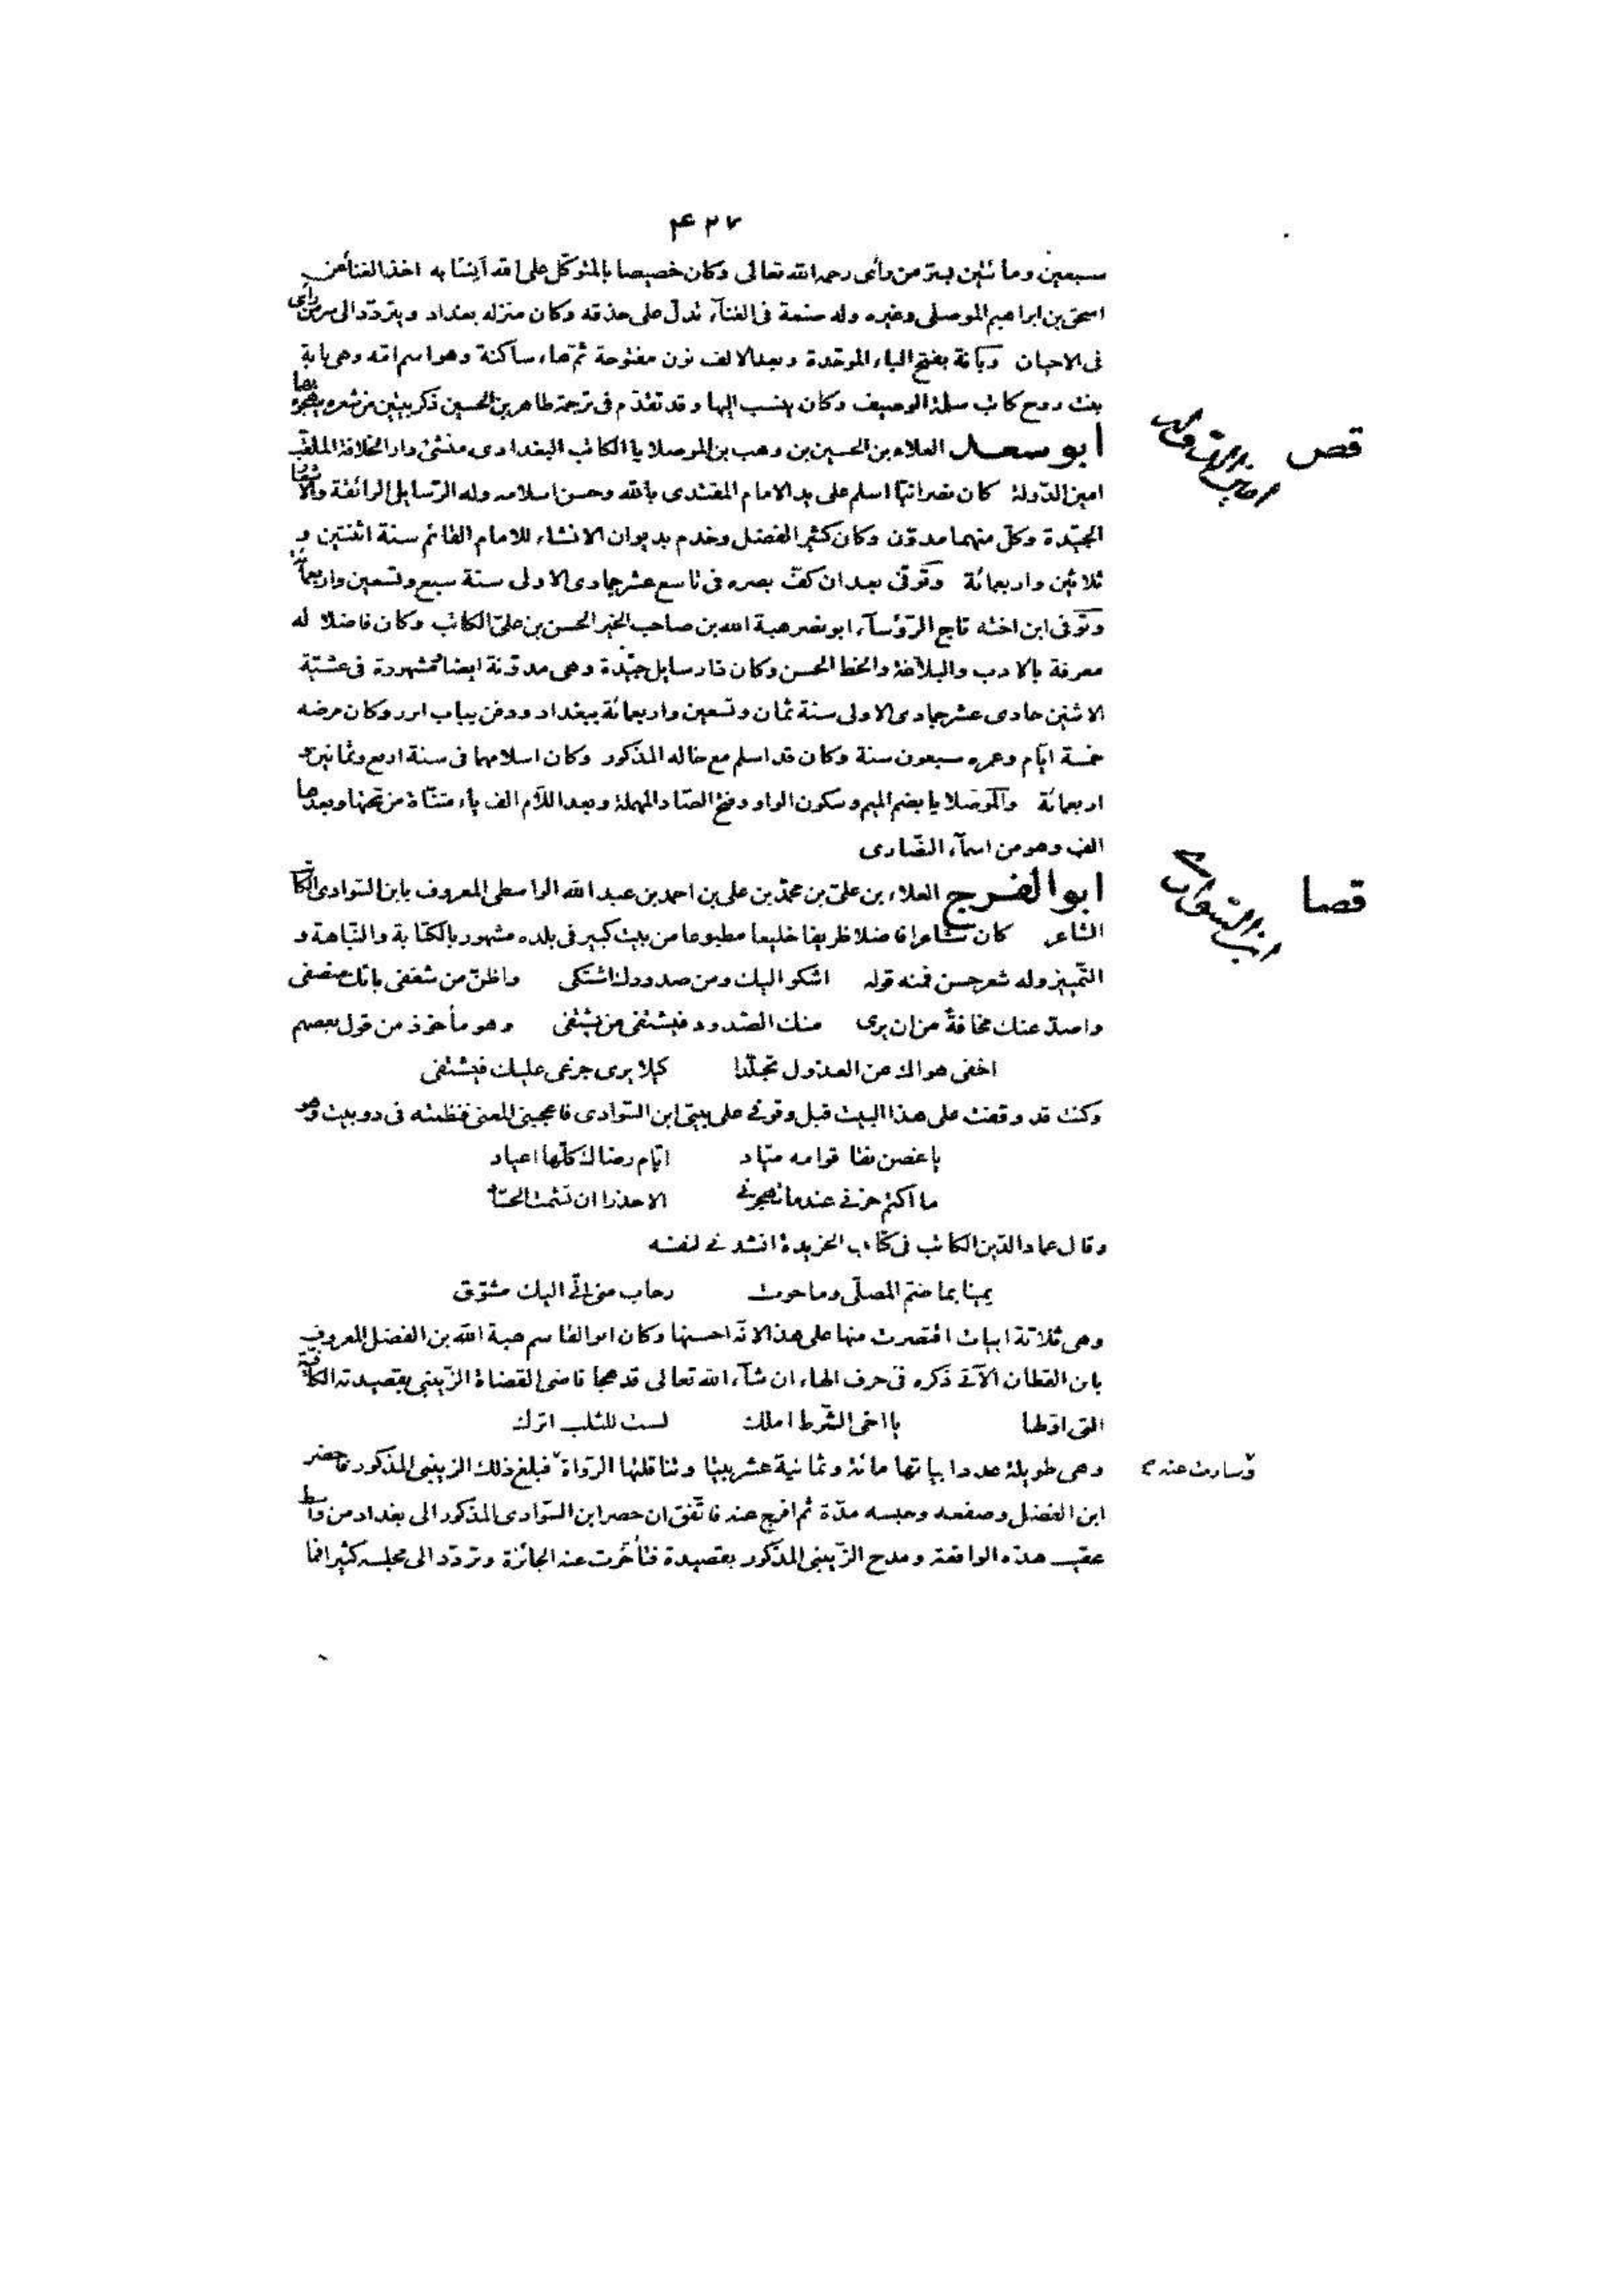 ۴۲۷
سبعين ومائتين بسر من رأى رحمه الله تعالى وكان خصيصا بالمتوكل على الله آنسا به اخذ الغناء عن
اسحق بن ابراهيم الموصلى وغيره وله صنعة فى الغناء تدل على حذقه وكان منزله بغداد ويتردد الى سر من رأى
فى الاحيان وبانة بفتح الباء الموحدة وبعد الالف نون مفتوحة ثم هاء ساكنة وهو اسم امه وهى بانة
بنت روح كاتب سلمة الوصيف وكان ينسب اليها وقد تقدم فى ترجمة طاهر بن الحسين ذكر بيتين من شعره يهجوه بها
قص
ابو سعد العلاء بن الحسين بن وهب بن الموصلايا الكاتب البغدادى منشئ دار الخلافة الملقب
امين الدولة كان نصرانيا اسلم على يد الامام المقتدى بالله وحسن اسلامه وله الرسايل الرائقة والاشعا
الجيدة وكل منهما مدون وكان كثير الفضل وخدم بديوان الانشاء للامام القائم سنة اثنتين و
ثلاثين واربعمائة وتوفى بعد ان كف بصره فى تاسع عشر جمادى الاولى سنة سبع وتسعين واربعمائة
وتوفى ابن اخته تاج الرؤساء ابو نصر هبة الله بن صاحب الخبر الحسن بن على الكاتب وكان فاضلا له
معرفة بالادب والبلاغة والخط الحسن وكان ذا رسايل جيدة وهى مدونة ايضا مشهورة فى عشية
الاثنين حادى عشر جمادى الاولى سنة ثمان وتسعين واربعمائة ببغداد ودفن بباب ابرز وكان مرضه
خمسة ايام وعمره سبعون سنة وكان قد اسلم مع خاله المذكور وكان اسلامهما فى سنة اربع وثمانين و
اربعمائة والموصلايا بضم الميم وسكون الواو وفتح الصاد المهملة وبعد اللام الف ياء مثناة من تحتها وبعدها
الف وهو من اسماء النصارى
قصا
ابن السوادى
ابو الفرج العلاء بن على بن محمد بن على بن احمد بن عبد الله الواسطى المعروف بابن السوادى الكاتب
الشاعر كان شاعرا فاضلا ظريفا خليعا مطبوعا من بيت كبير فى بلده مشهور بالكتابة والنباهة و
التمييز وله شعر حسن فمنه قوله اشكو اليك ومن صدودك اشتكى واظن من شغفى بانك منصفى
واصد عنك مخافة من ان يرى منك الصدود فيشتفى من يشتفى وهو مأخوذ من قول بعضهم
اخفى هواك عن العذول تجلدا كيلا يرى جزعى عليك فيشتفى
وكنت قد وقفت على هذا البيت قبل وقوفى على بيتى ابن السوادى فاعجبنى المعنى فنظمته فى دوبيت وهو
يا غصن نقا قوامه مياد ايام رضاك كلها اعياد
ما اكثر حزنى عند ما تهجرنى الا حذرا ان تشمت الحساد
وقال عماد الدين الكاتب فى كتاب الخريدة انشدنى لنفسه
يمينا بما ضم المصلى وما حوت رحاب منى انى اليك مشوق
وهى ثلاثة ابيات اقتصرت منها على هذا لانه احسنها وكان ابو القاسم هبة الله بن الفضل المعروف
بابن القطان الآتى ذكره فى حرف الهاء ان شاء الله تعالى قد هجا قاضى القضاة الزينبى بقصيدته الكافية
التى اولها يا اخى الشرط املك لست للثلب اترك
وهى طويلة عدد ابياتها مائة وثمانية عشر بيتا وتناقلتها الرواة فبلغ ذلك الزينبى المذكور فاحضر
وسارت عنه
ابن الفضل وصفعه وحبسه مدة ثم افرج عنه فاتفق ان حضر ابن السوادى المذكور الى بغداد من واسط
عقيب هذه الواقعة ومدح الزينبى المذكور بقصيدة فتأخرت عنه الجائزة وتردد الى مجلسه كثيرا فما